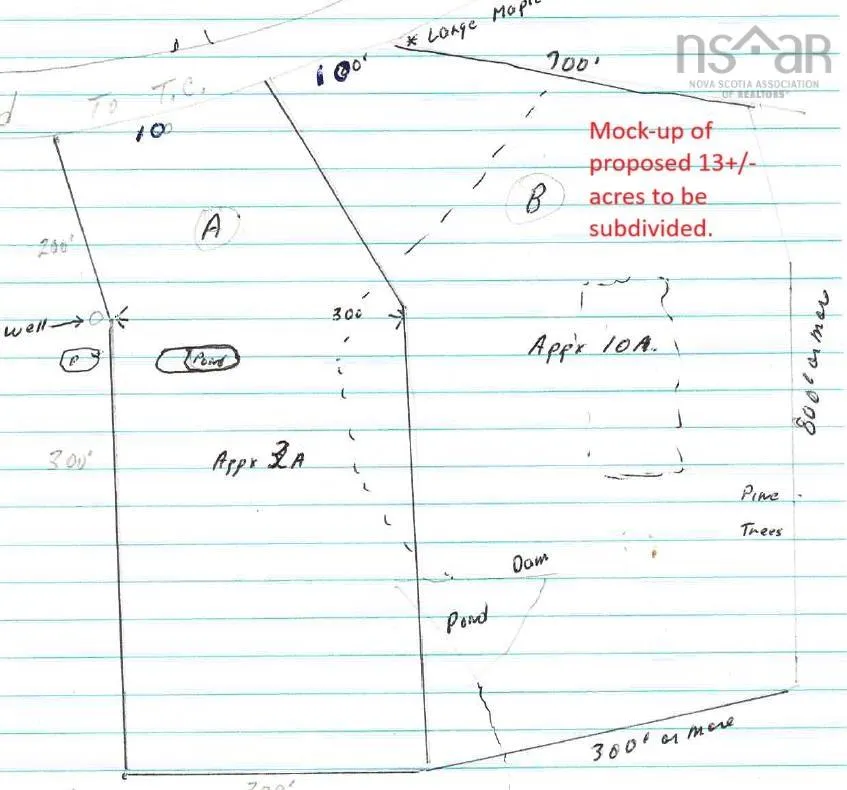 * Large Maple
100'
700'
nsaar
NOVA SCOTIA ASSOCIATION
OF REALTORS®
d
To T.C.
100
Mock-up of
proposed 13+/-
acres to be
subdivided.
A
B
200'
well
300'
P
Pond
App'x 10A.
800' or more
300'
Appx 3A
Pine
Trees
Dam
Pond
300' or more
300'